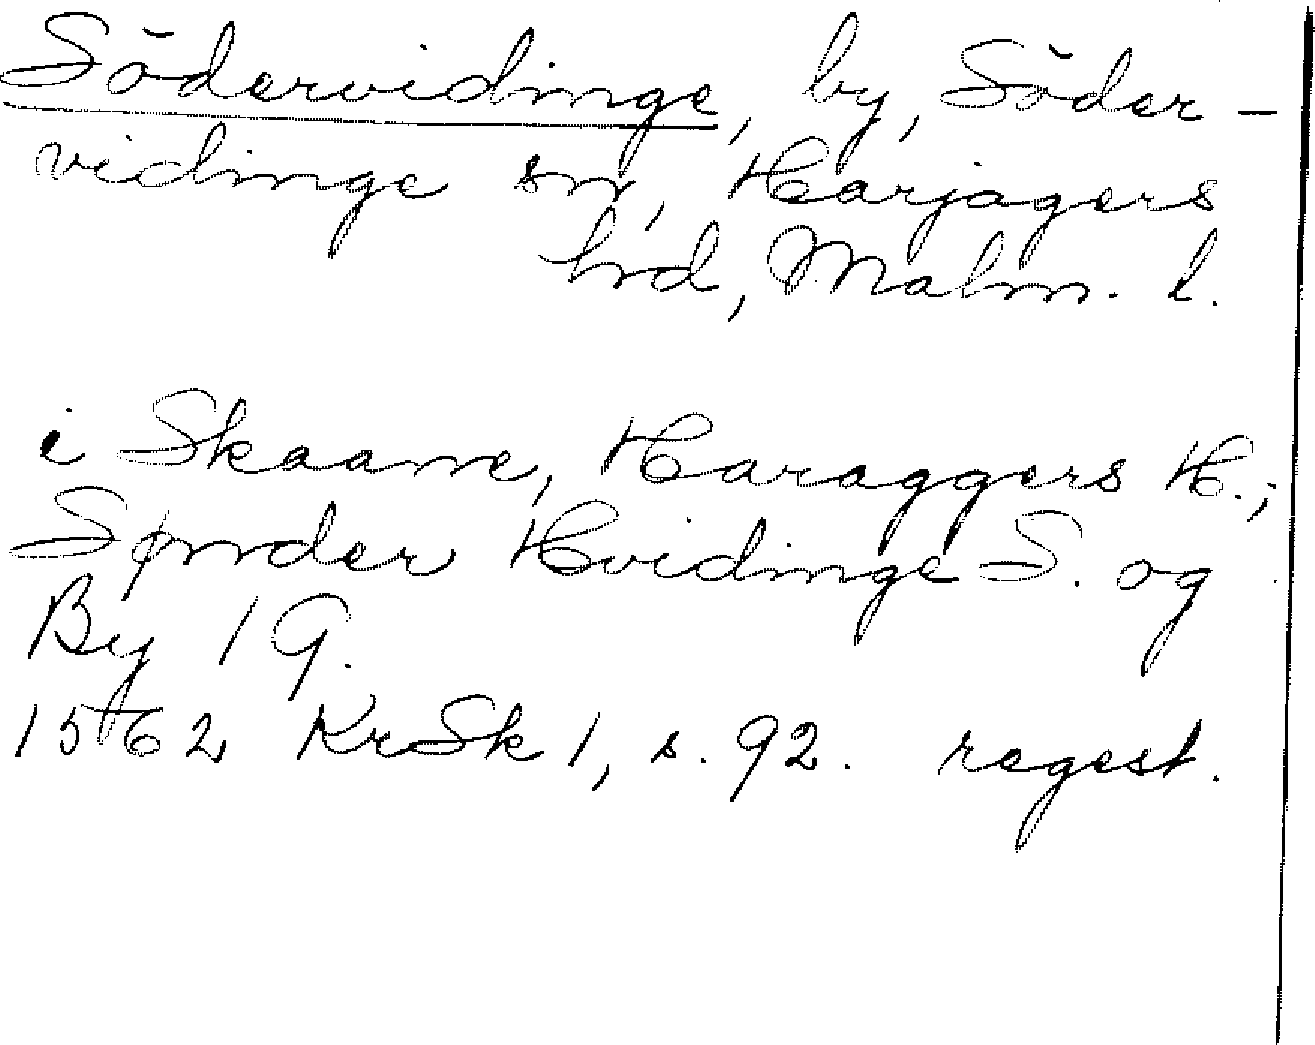 Södervidinge, by, Söder-
vidinge sn, Harjagers
hrd, Malm. l.
i Skaane, Haraggers H.,
Synder Hvidinge S. og
By 1 G.
1562 KrSk 1, s. 92. regest.